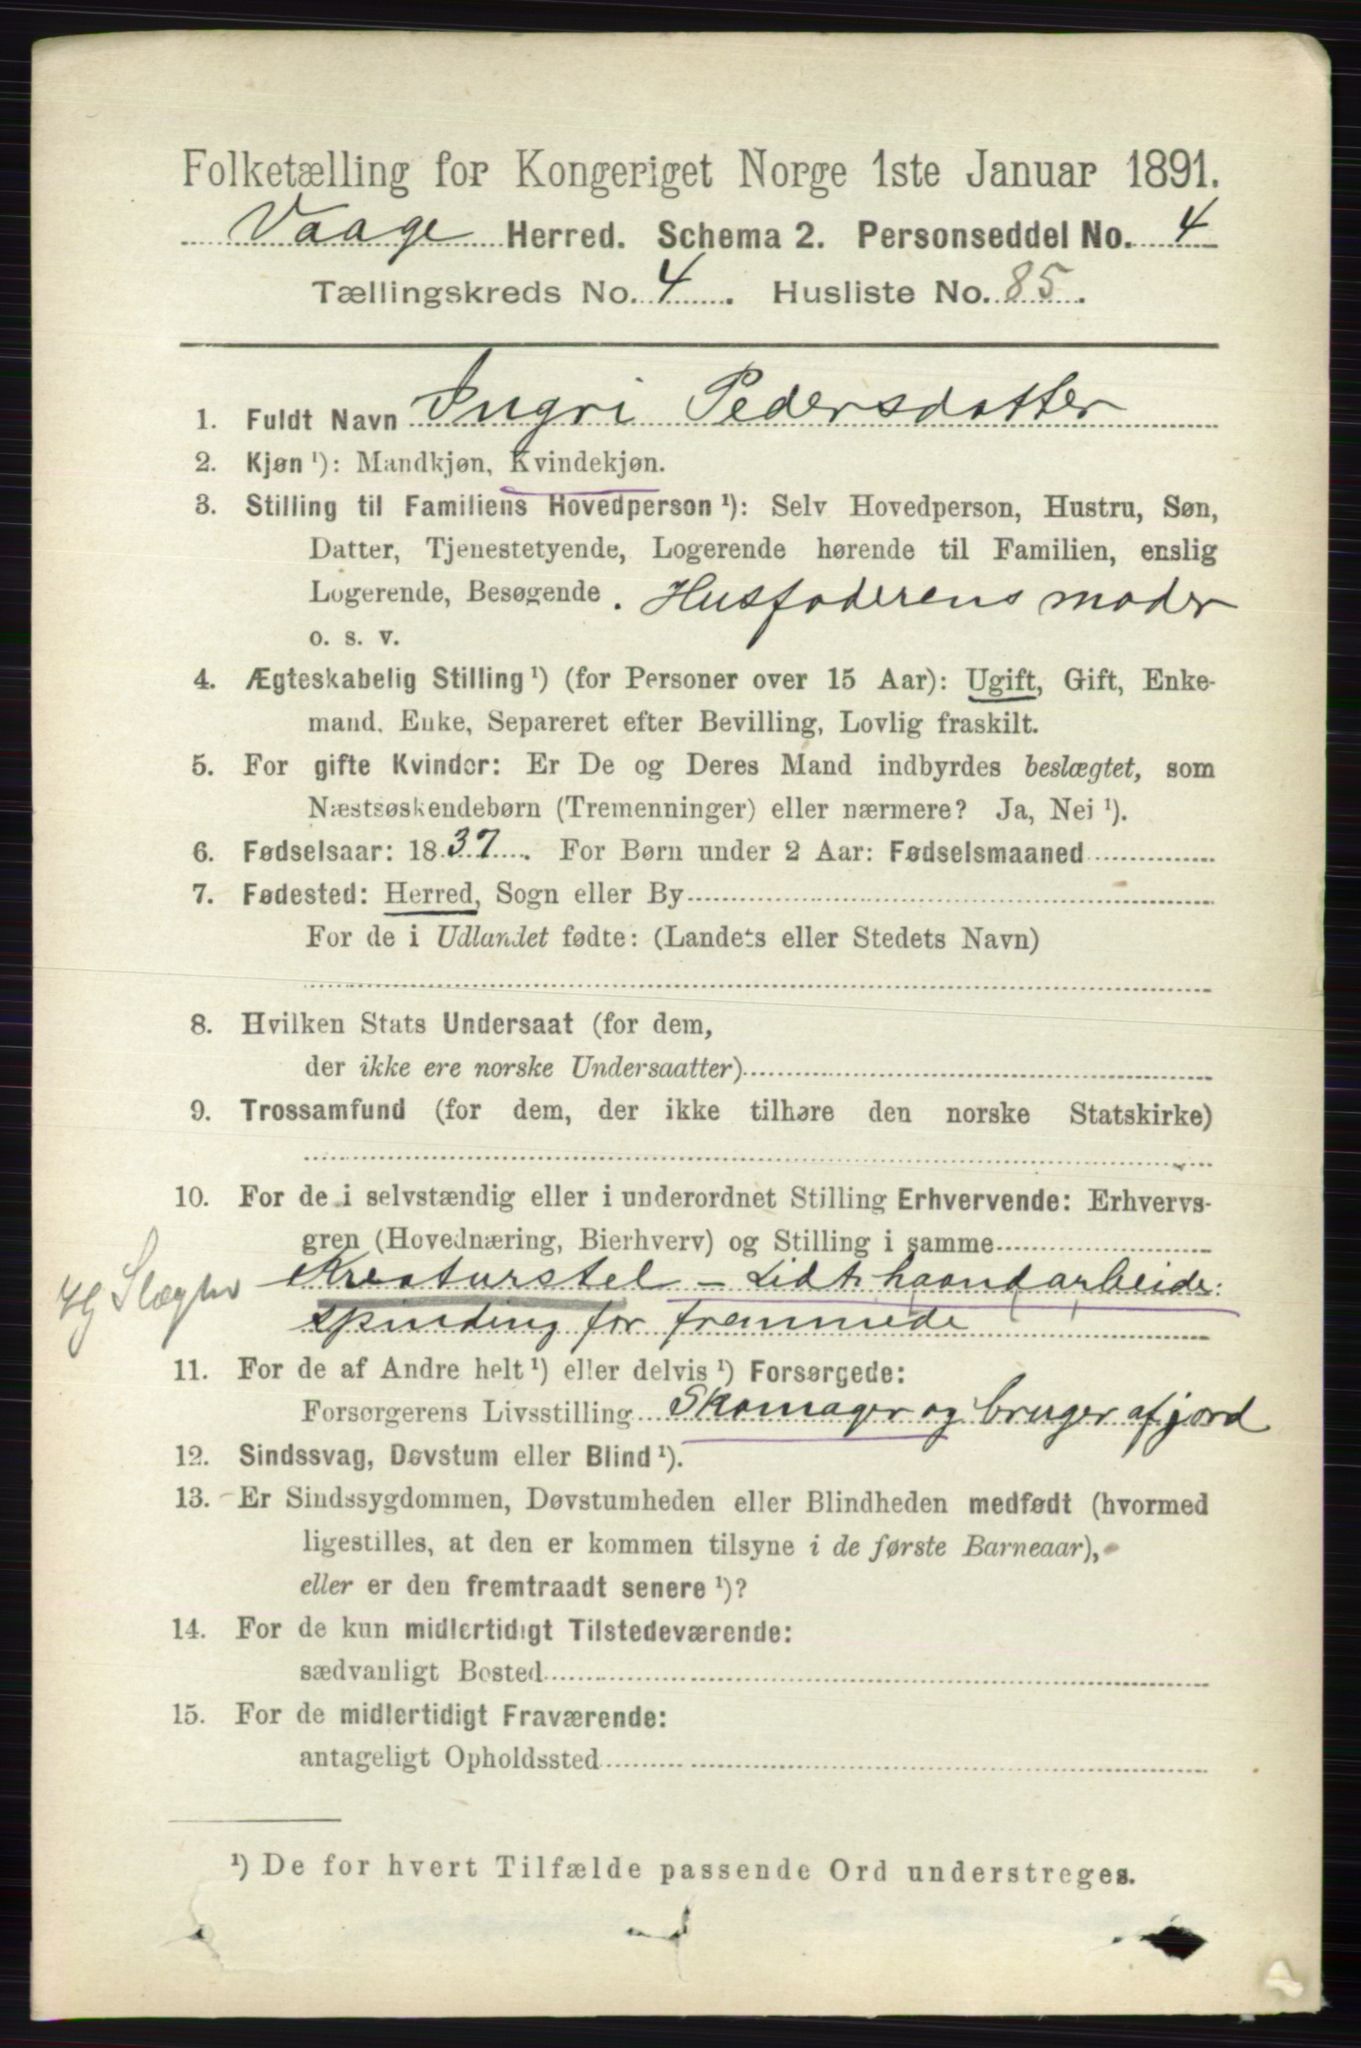 Folketælling for Kongeriget Norge 1ste Januar 1891.
Vaage Herred. Schema 2. Personseddel No. 4
Tællingskreds No. 4. Husliste No. 85.
1. Fuldt Navn Ingri Pedersdatter
2. Kjøn ¹): Mandkjøn, Kvindekjøn.
3. Stilling til Familiens Hovedperson ¹): Selv Hovedperson, Hustru, Søn,
Datter, Tjenestetyende, Logerende hørende til Familien, enslig
Logerende, Besøgende. Husfaderens moder
o. s. v.
4. Ægteskabelig Stilling ¹) (for Personer over 15 Aar): Ugift, Gift, Enke-
mand, Enke, Separeret efter Bevilling, Lovlig fraskilt.
5. For gifte Kvinder: Er De og Deres Mand indbyrdes beslægtet, som
Næstsøskendebørn (Tremenninger) eller nærmere? Ja, Nei ¹).
6. Fødselsaar: 1837. For Børn under 2 Aar: Fødselsmaaned
7. Fødested: Herred, Sogn eller By
For de i Udlandet fødte: (Landets eller Stedets Navn)
8. Hvilken Stats Undersaat (for dem,
der ikke ere norske Undersaatter)
9. Trossamfund (for dem, der ikke tilhøre den norske Statskirke)
10. For de i selvstændig eller i underordnet Stilling Erhvervende: Erhvervs-
gren (Hovednæring, Bierhverv) og Stilling i samme
Kreaturstel – Lidt haandarbeide:
spinding for fremmede
11. For de af Andre helt ¹) eller delvis ¹) Forsørgede:
Forsørgerens Livsstilling Skomager og bruger af jord
12. Sindssvag, Døvstum eller Blind ¹).
13. Er Sindssygdommen, Døvstumheden eller Blindheden medfødt (hvormed
ligestilles, at den er kommen tilsyne i de første Barneaar),
eller er den fremtraadt senere ¹)?
14. For de kun midlertidigt Tilstedeværende:
sædvanligt Bosted
15. For de midlertidigt Fraværende:
antageligt Opholdssted
¹) De for hvert Tilfælde passende Ord understreges.